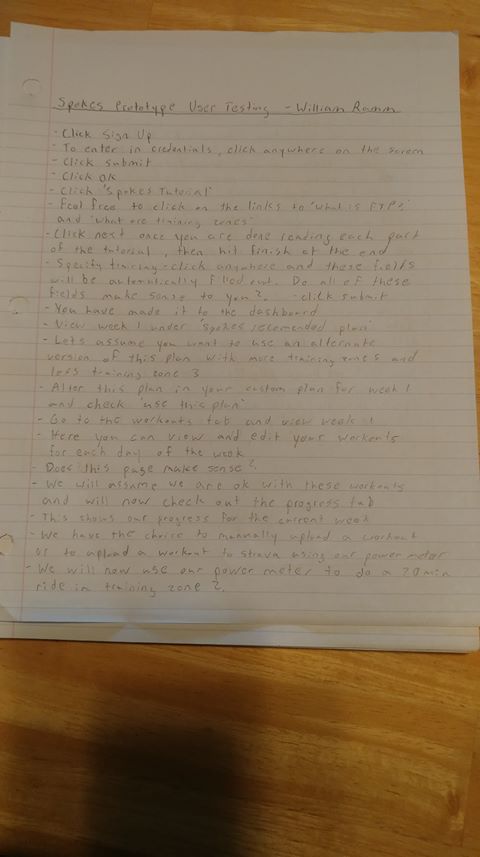 Spokes Prototype User Testing - William Ramm
- Click Sign Up
- To enter in credentials, click anywhere on the screen
- Click submit
- Click OK
- Click 'Spokes Tutorial'
- Feel free to click on the links to 'what is FTP?'
and 'what are training zones'
- Click next once you are done reading each part
of the tutorial, then hit finish at the end
- Specify training - click anywhere and these fields
will be automatically filled out. Do all of these
fields make sense to you?. - click submit
- You have made it to the dashboard
- View week 1 under 'spokes recomended plan'
- Lets assume you want to use an alternate
version of this plan with more training zone 5 and
less training zone 3
- Alter this plan in your custom plan for week 1
and check 'use this plan'
- Go to the workouts tab and view week 1
- Here you can view and edit your workouts
for each day of the week
- Does this page make sense?
- We will assume we are ok with these workouts
and will now check out the progress tab
- This shows our progress for the current week
- We have the choice to manually upload a workout
or to upload a workout to strava using our power meter
- We will now use our power meter to do a 20 min
ride in training zone 2.